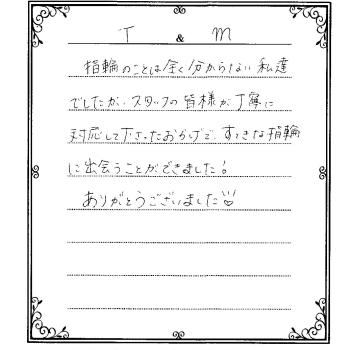 T & M
指輪のことは全く分からない私達
でしたが、スタッフの皆様が丁寧に
対応して下さったおかげで、すてきな指輪
に出会うことができました!
ありがとうございました